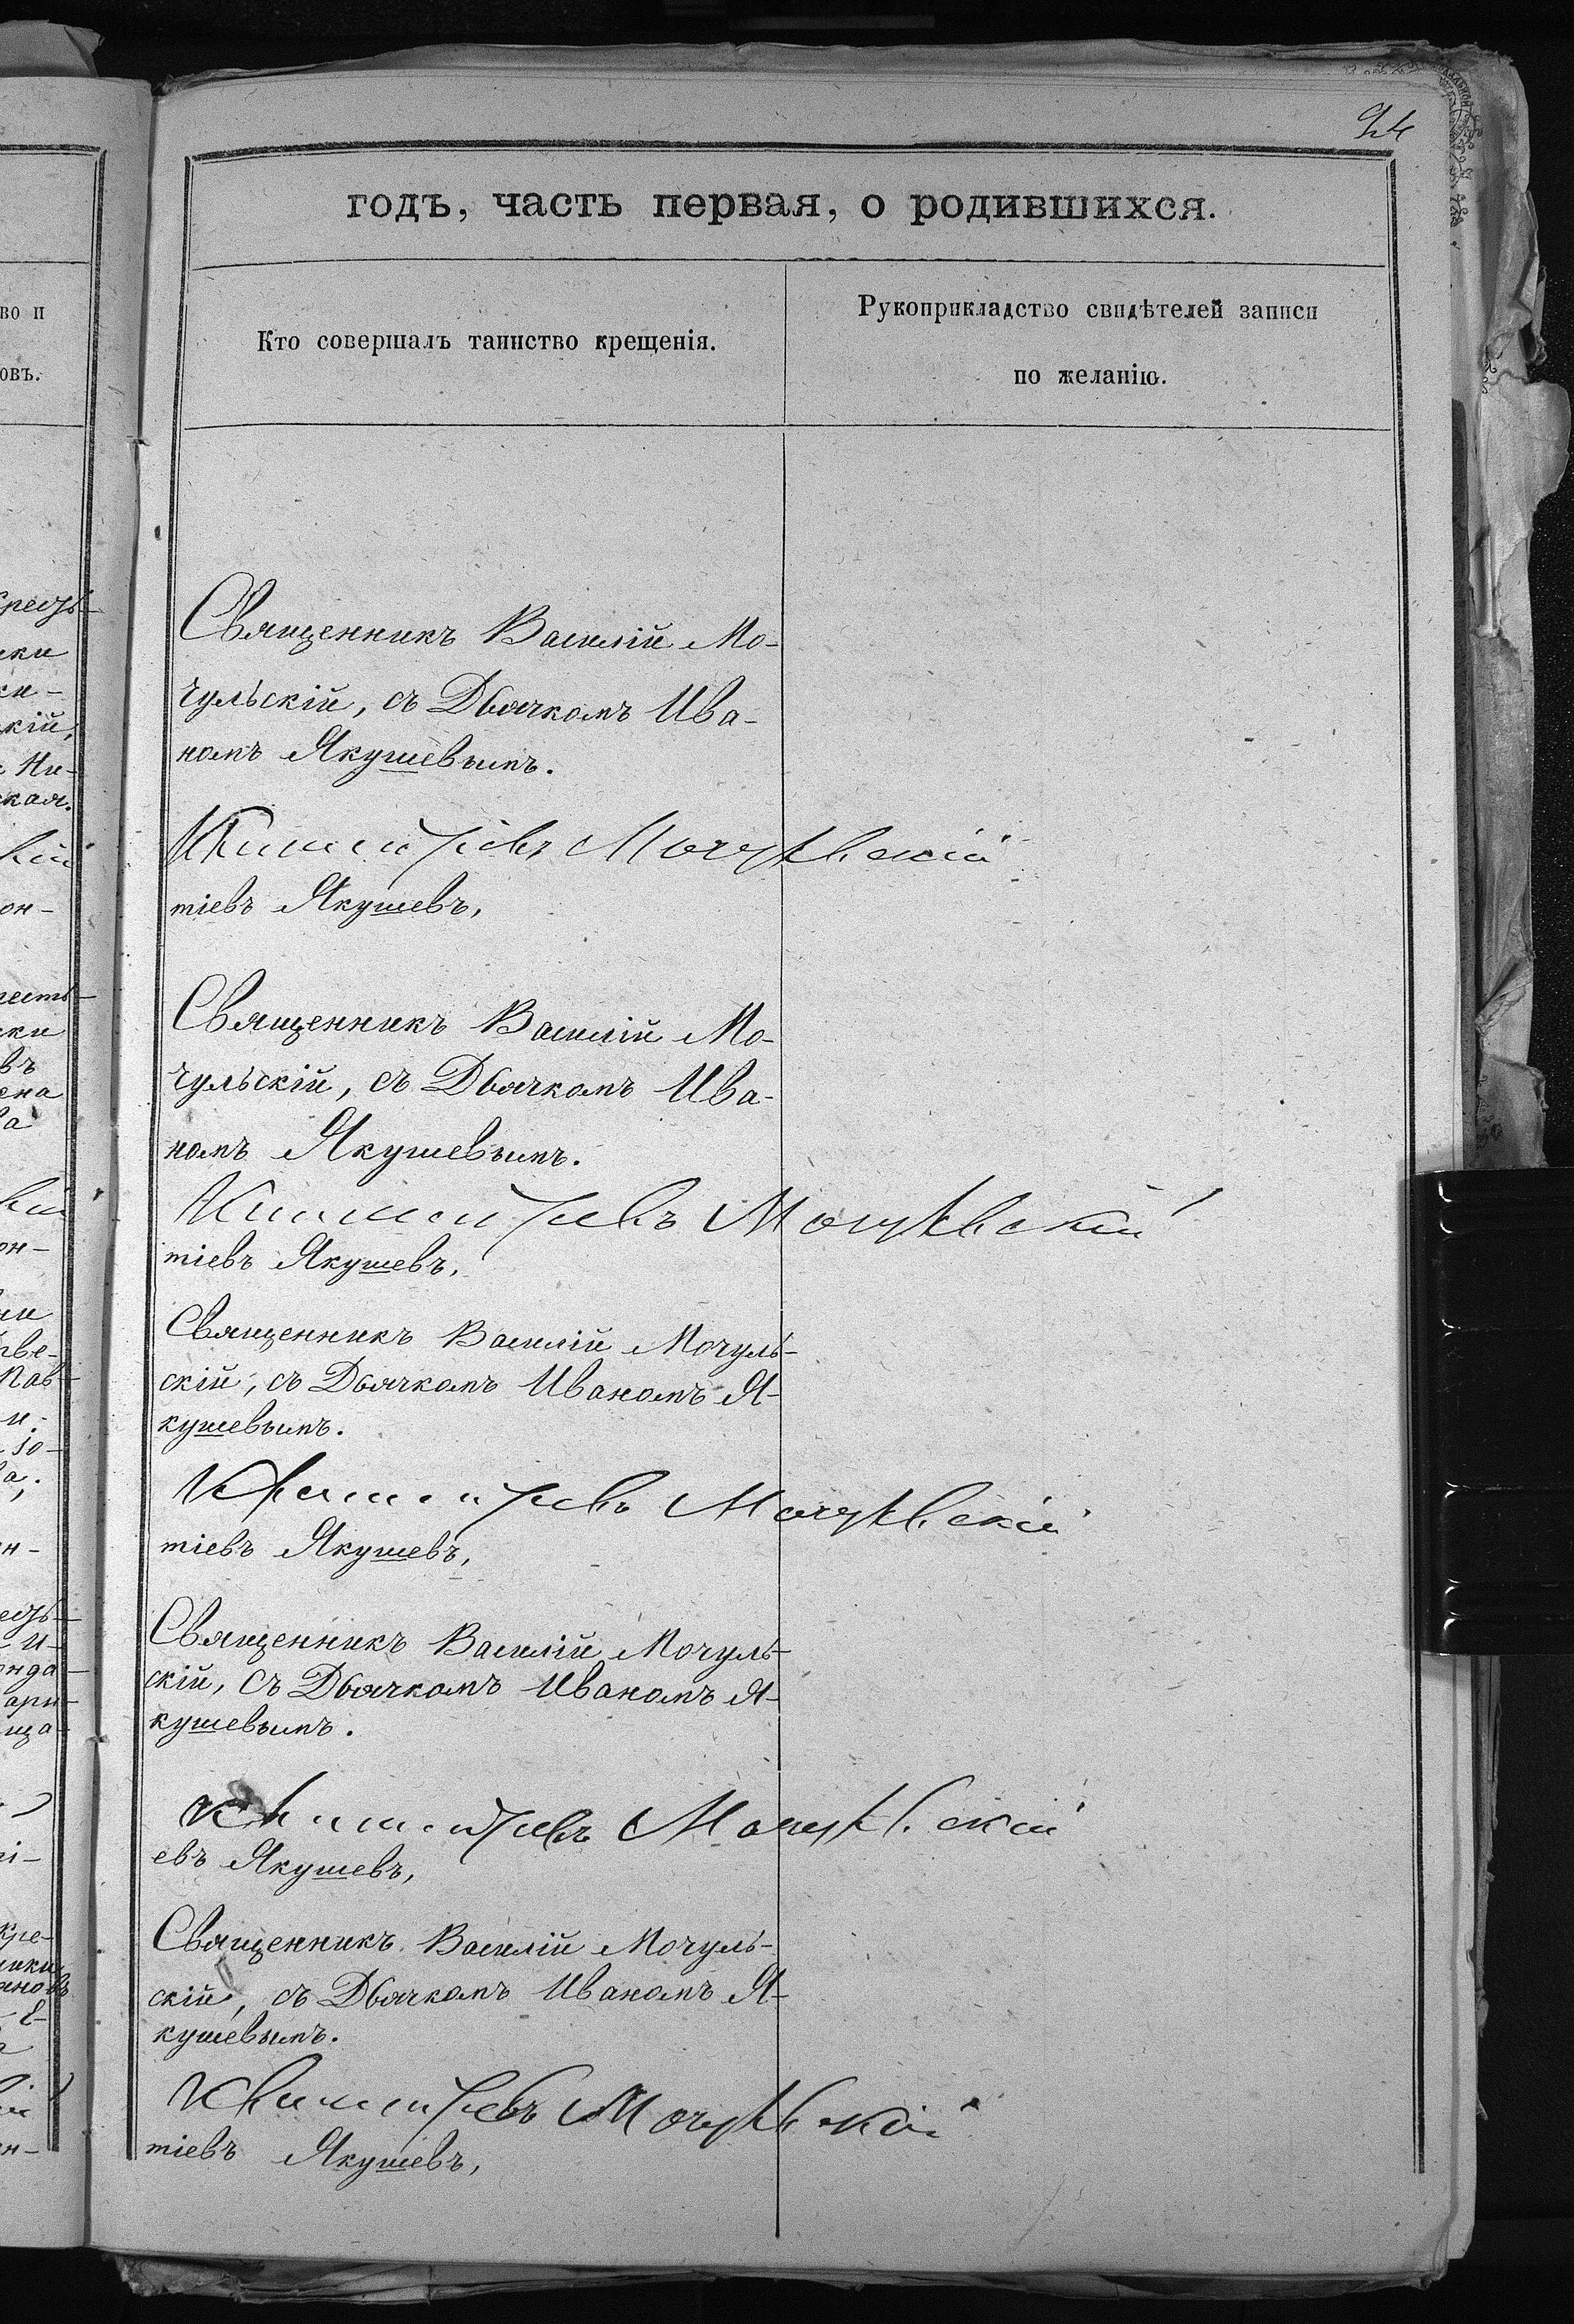 94
годъ, часть первая, о родившихся.
Кто совершалъ таинство крещенія.
Рукоприкладство свидѣтелей записи
по желанію.
Священникъ Василій Мо-
чульскій, съ Дьячкомъ Ива-
номъ Якушевымъ.
Мочульскій
тіевъ Якушевъ,
Священникъ Василій Мо-
чульскій, съ Дьячкомъ Ива-
номъ Якушевымъ.
Мочульскій
тіевъ Якушевъ,
Священникъ Василій Мочуль-
скій, съ Дьячкомъ Иваномъ Я-
кушевымъ.
Мочульскій
тіевъ Якушевъ,
Священникъ Василій Мочуль-
скій, съ Дьячкомъ Иваномъ Я-
кушевымъ.
Мочульскій
евъ Якушевъ,
Священникъ Василій Мочуль-
скій, съ Дьячкомъ Иваномъ Я-
кушевымъ.
Мочульскій
тіевъ Якушевъ,